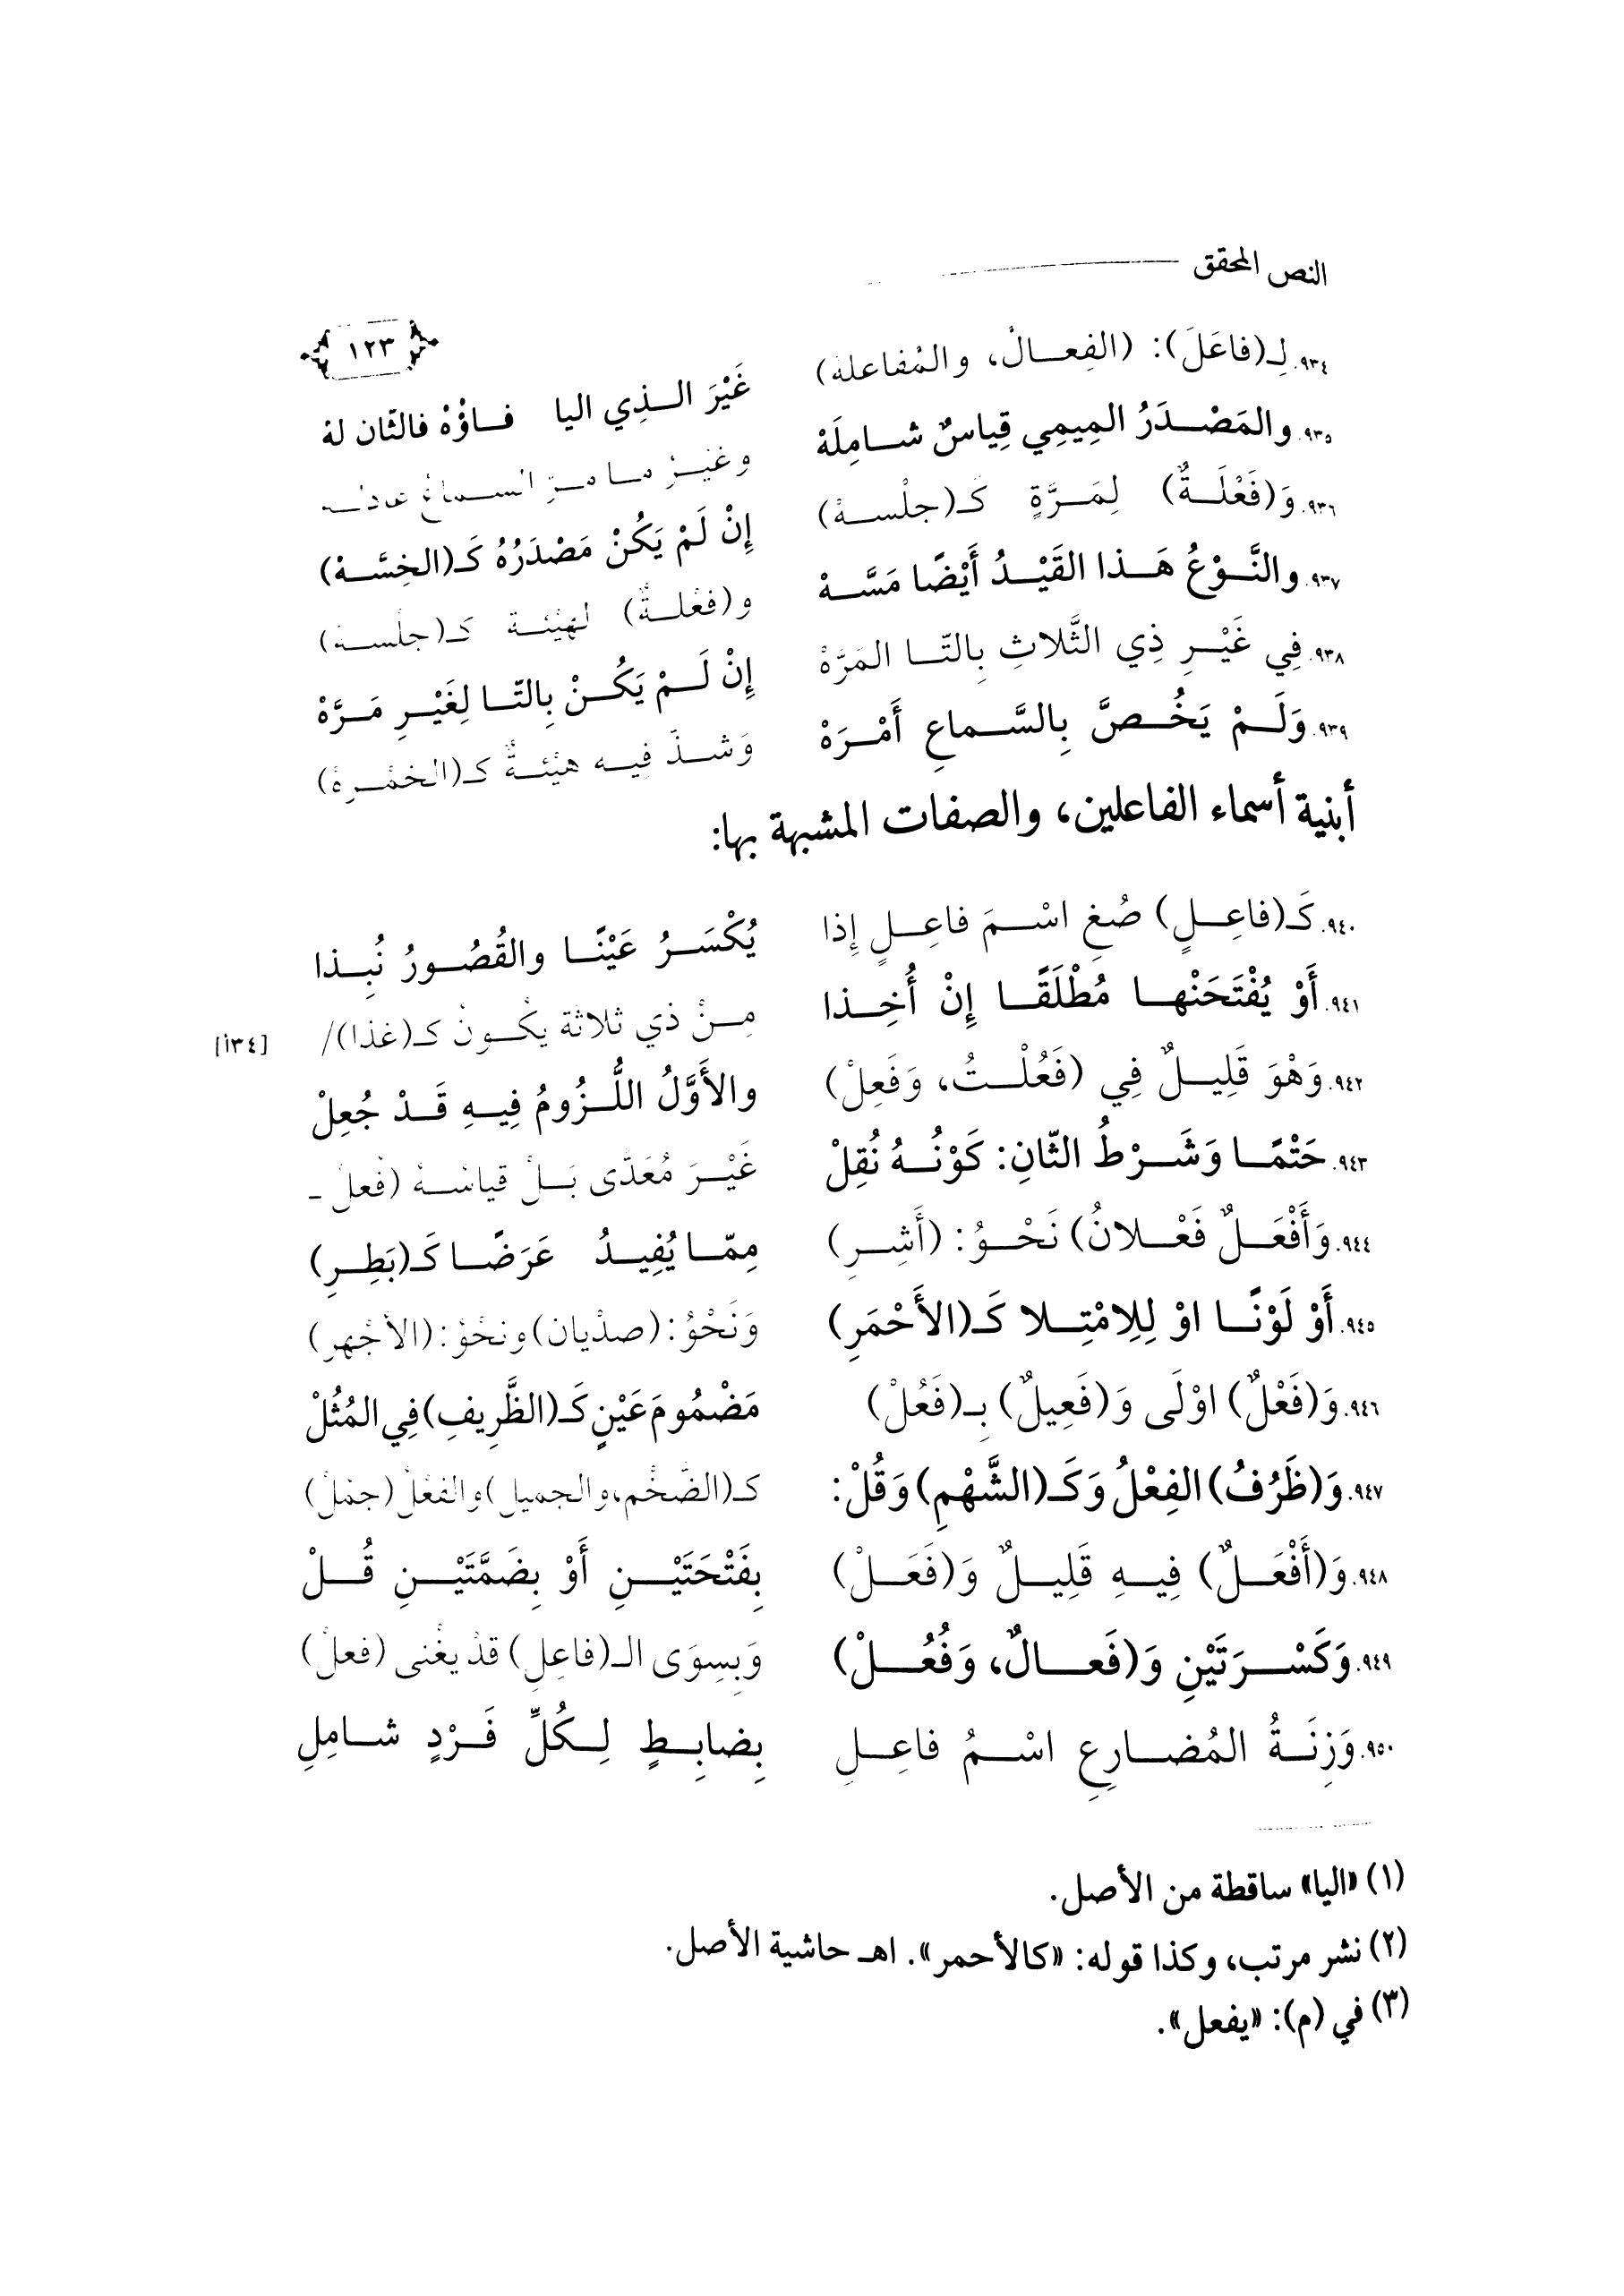 النص المحقق
١٢٣
٩٣٤. لِـ(فاعَلَ): (الفِعـالُ، والمُفاعلهْ) غَيْرَ الـذِي اليا فـاؤُهْ فالثّان لهْ
٩٣٥. والمَصْـدَرُ المِيمِي قِياسٌ شـامِلَهْ وغيْرُ مـا مـرّ السـماعُ عادلـه
٩٣٦. وَ(فَعْلَـةٌ) لِمَـرَّةٍ كَـ(جلْسـهْ) إِنْ لَمْ يَكُنْ مَصْدَرُهُ كَـ(الخِسَّـهْ)
٩٣٧. والنَّـوْعُ هَـذا القَيْـدُ أَيْضًا مَسَّـهْ و(فعْلـةٌ) لهيْئـة كـ(جلْسـهْ)
٩٣٨. فِي غَيْـرِ ذِي الثَّلاثِ بِالتّـا المَرَّهْ إِنْ لَـمْ يَكُـنْ بِالتّـا لِغَيْـرِ مَـرَّهْ
٩٣٩. وَلَـمْ يَخُـصَّ بِالسَّـماعِ أَمْـرَهْ وَشـذّ فِيـه هيْئـةٌ كـ(الخمْـرهْ)
أبنية أسماء الفاعلين، والصفات المشبهة بها:
٩٤٠. كَـ(فاعِـلٍ) صُغِ اسْـمَ فاعِـلٍ إِذا يُكْسَـرُ عَيْنًـا والقُصُـورُ نُبِـذا
٩٤١. أَوْ يُفْتَحَنْهـا مُطْلَقًـا إِنْ أُخِـذا مِـنْ ذي ثلاثة يكُـونُ كـ(غذا)/ [١٣٤أ]
٩٤٢. وَهْوَ قَلِيـلٌ فِي (فَعُلْـتُ، وَفَعِلْ) والأَوَّلُ اللُّـزُومُ فِيـهِ قَـدْ جُعِلْ
٩٤٣. حَتْمًـا وَشَـرْطُ الثّانِ: كَوْنُـهُ نُقِلْ غَيْـرَ مُعَدًّى بَـلْ قياسُـهُ (فعلْ ـ
٩٤٤. وَأَفْعَـلٌ فَعْـلانُ) نَحْـوُ: (أَشِـرِ) مِمّـا يُفِيـدُ عَرَضًـا كَـ(بَطِـرِ)
٩٤٥. أَوْ لَوْنًـا اوْ لِلِامْتِـلا كَـ(الأَحْمَرِ) وَنَحْوُ: (صدْيان) ونحْوُ: (الأجْهرِ)
٩٤٦. وَ(فَعْلٌ) اوْلَى وَ(فَعِيلٌ) بِـ(فَعُلْ) مَضْمُومَ عَيْنٍ كَـ(الظَّرِيفِ) فِي المُثُلْ
٩٤٧. وَ(ظَرُفُ) الفِعْلُ وَكَـ(الشَّهْمِ) وَقُلْ: كـ(الضّخْم، والجميل) والفعْلُ (جمُلْ)
٩٤٨. وَ(أَفْعَـلٌ) فِيـهِ قَلِيـلٌ وَ(فَعَـلْ) بِفَتْحَتَيْـنِ أَوْ بِضَمَّتَيْـنِ قُـلْ
٩٤٩. وَكَسْـرَتَيْنِ وَ(فَعـالٌ، وَفُعُـلْ) وَبِسِوَى الـ(فاعِلِ) قدْ يغْنى (فعلْ)
٩٥٠. وَزِنَـةُ المُضـارِعِ اسْـمُ فاعِـلِ بِضابِـطٍ لِـكُلِّ فَـرْدٍ شـامِلِ
(١) «اليا» ساقطة من الأصل.
(٢) نشر مرتب، وكذا قوله: «كالأحمر». اهـ حاشية الأصل.
(٣) في (م): «يفعل».